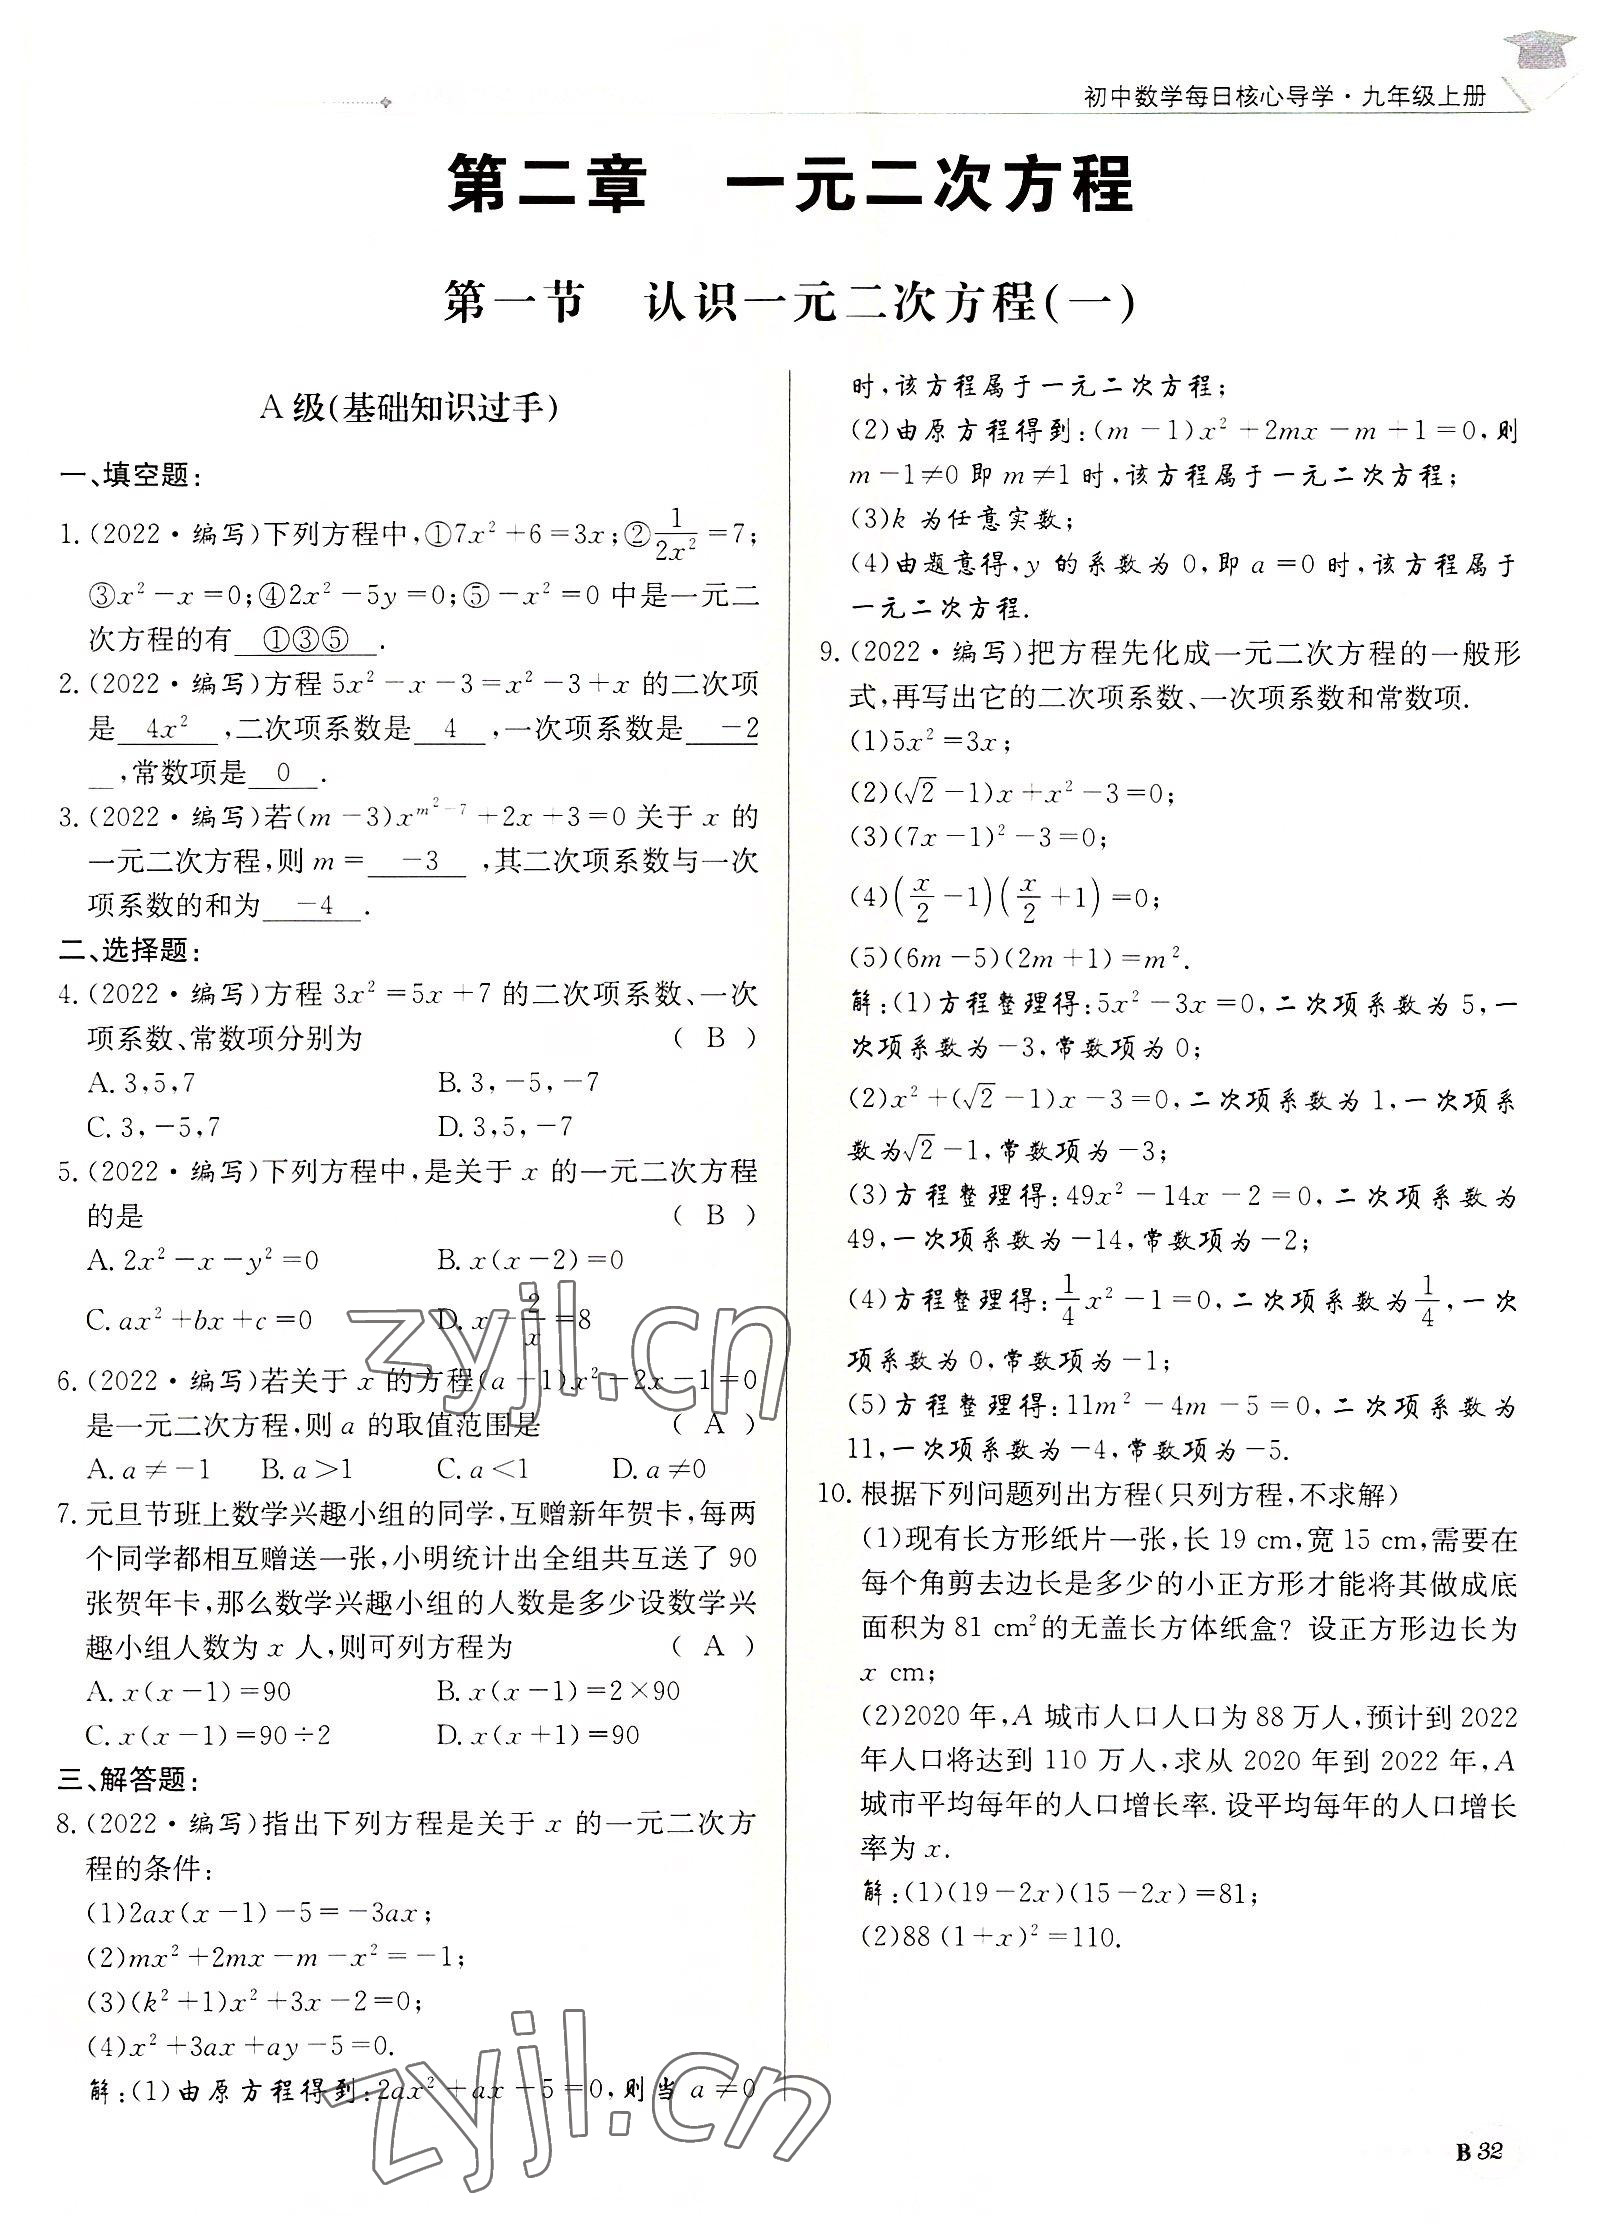 初中数学每日核心导学·九年级上册
第二章　一元二次方程
第一节　认识一元二次方程(一)
A级(基础知识过手)
一、填空题:
1.(2022·编写)下列方程中,①7x²+6=3x;②1/(2x²)=7;
③x²-x=0;④2x²-5y=0;⑤-x²=0中是一元二
次方程的有 ①③⑤ .
2.(2022·编写)方程5x²-x-3=x²-3+x的二次项
是 4x² ,二次项系数是 4 ,一次项系数是 -2
 ,常数项是 0 .
3.(2022·编写)若(m-3)x^(m²-7)+2x+3=0关于x的
一元二次方程,则m= -3 ,其二次项系数与一次
项系数的和为 -4 .
二、选择题:
4.(2022·编写)方程3x²=5x+7的二次项系数、一次
项系数、常数项分别为 ( B )
A.3,5,7 B.3,-5,-7
C.3,-5,7 D.3,5,-7
5.(2022·编写)下列方程中,是关于x的一元二次方程
的是 ( B )
A.2x²-x-y²=0 B.x(x-2)=0
C.ax²+bx+c=0 D.x-2/x=8
6.(2022·编写)若关于x的方程(a+1)x²-2x-1=0
是一元二次方程,则a的取值范围是 ( A )
A.a≠-1 B.a>1 C.a<1 D.a≠0
7.元旦节班上数学兴趣小组的同学,互赠新年贺卡,每两
个同学都相互赠送一张,小明统计出全组共互送了90
张贺年卡,那么数学兴趣小组的人数是多少设数学兴
趣小组人数为x人,则可列方程为 ( A )
A.x(x-1)=90 B.x(x-1)=2×90
C.x(x-1)=90÷2 D.x(x+1)=90
三、解答题:
8.(2022·编写)指出下列方程是关于x的一元二次方
程的条件:
(1)2ax(x-1)-5=-3ax;
(2)mx²+2mx-m-x²=-1;
(3)(k²+1)x²+3x-2=0;
(4)x²+3ax+ay-5=0.
解:(1)由原方程得到:2ax²+ax-5=0,则当a≠0
时,该方程属于一元二次方程;
(2)由原方程得到:(m-1)x²+2mx-m+1=0,则
m-1≠0即m≠1时,该方程属于一元二次方程;
(3)k为任意实数;
(4)由题意得,y的系数为0,即a=0时,该方程属于
一元二次方程.
9.(2022·编写)把方程先化成一元二次方程的一般形
式,再写出它的二次项系数、一次项系数和常数项.
(1)5x²=3x;
(2)(√2-1)x+x²-3=0;
(3)(7x-1)²-3=0;
(4)(x/2-1)(x/2+1)=0;
(5)(6m-5)(2m+1)=m².
解:(1)方程整理得:5x²-3x=0,二次项系数为5,一
次项系数为-3,常数项为0;
(2)x²+(√2-1)x-3=0,二次项系数为1,一次项系
数为√2-1,常数项为-3;
(3)方程整理得:49x²-14x-2=0,二次项系数为
49,一次项系数为-14,常数项为-2;
(4)方程整理得:1/4x²-1=0,二次项系数为1/4,一次
项系数为0,常数项为-1;
(5)方程整理得:11m²-4m-5=0,二次项系数为
11,一次项系数为-4,常数项为-5.
10.根据下列问题列出方程(只列方程,不求解)
(1)现有长方形纸片一张,长19 cm,宽15 cm,需要在
每个角剪去边长是多少的小正方形才能将其做成底
面积为81 cm²的无盖长方体纸盒? 设正方形边长为
x cm;
(2)2020年,A城市人口人口为88万人,预计到2022
年人口将达到110万人,求从2020年到2022年,A
城市平均每年的人口增长率.设平均每年的人口增长
率为x.
解:(1)(19-2x)(15-2x)=81;
(2)88(1+x)²=110.
zyjl.cn
zyjl.cn
B 32